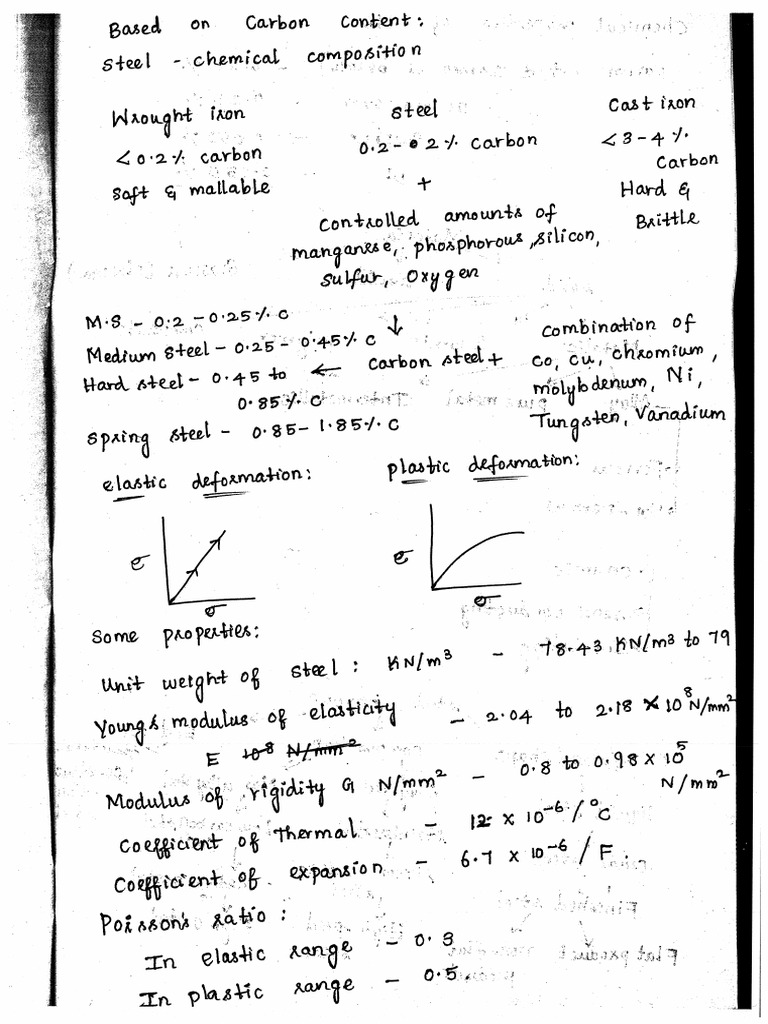 Based on Carbon Content:
Steel - chemical composition
Wrought iron
< 0.2% carbon
Soft & mallable
Steel
0.2 - 2% carbon
+
Controlled amounts of
manganese, phosphorous, silicon,
sulfur, Oxygen
Cast iron
< 3-4%
Carbon
Hard &
Brittle
M.S - 0.2 - 0.25% C
Medium Steel - 0.25 - 0.45% C
Hard steel - 0.45 to
0.85% C
Spring steel - 0.85 - 1.85% C
↓
← Carbon steel +
Combination of
Co, Cu, Chromium,
molybdenum, Ni,
Tungsten, Vanadium
elastic deformation:
plastic deformation:
σ
σ
σ
σ
Some properties:
Unit weight of steel : KN/m³ - 78.43 KN/m³ to 79
Young's modulus of elasticity - 2.04 to 2.18 × 10⁸ N/mm²
E 10⁸ N/mm²
Modulus of rigidity G N/mm² - 0.8 to 0.98 × 10⁵
N/mm²
Coefficient of Thermal - 12 × 10⁻⁶ / °C
Coefficient of expansion - 6.7 × 10⁻⁶ / F.
Poisson's ratio :
In elastic range - 0.3
In plastic range - 0.5